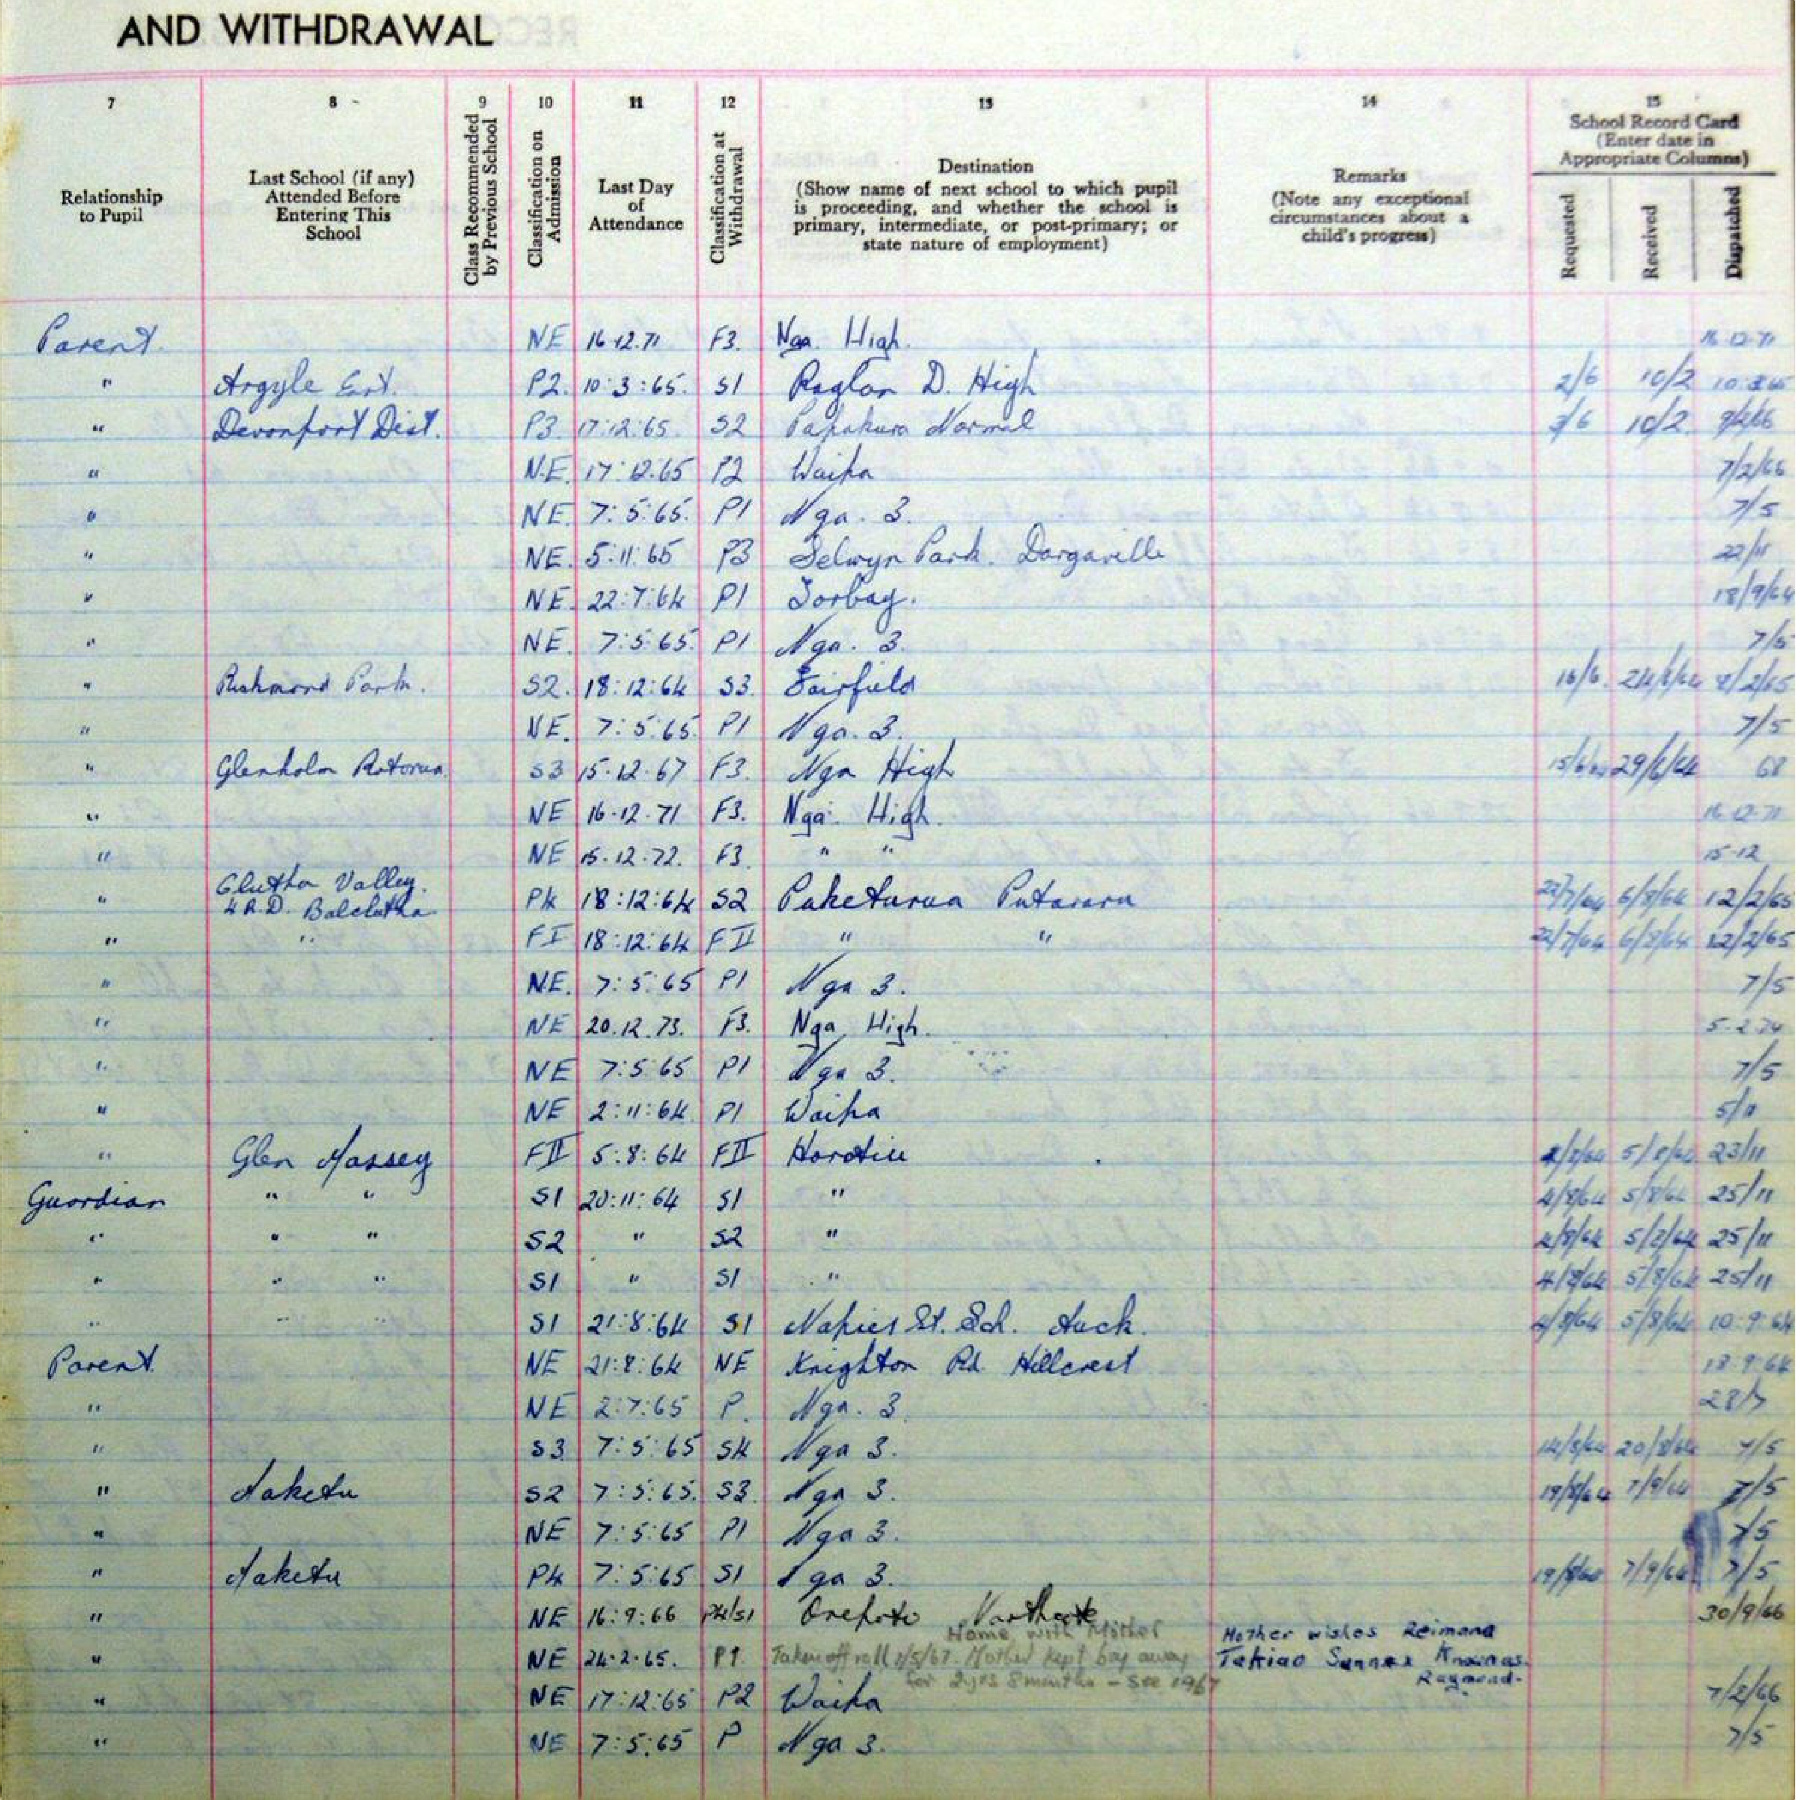 AND WITHDRAWAL
7 8 9 10 11 12 13 14 15
Relationship to Pupil
Last School (if any) Attended Before Entering This School
Class Recommended by Previous School
Classification on Admission
Last Day of Attendance
Classification at Withdrawal
Destination
(Show name of next school to which pupil
is proceeding, and whether the school is
primary, intermediate, or post-primary; or
state nature of employment)
Remarks
(Note any exceptional
circumstances about a
child's progress)
School Record Card
(Enter date in
Appropriate Columns)
Requested Received Dispatched
Parent. NE 16.12.71 F3. Nga. High. 16.12.71
" Argyle East. P2. 10:3:65. S1 Raglan D. High 2/6 10/2
" Devonport Dist. P3 17:12:65 S2 Papakura Normal 3/6 10/2 9/2/66
" N.E. 17:12:65 P2 Waipa 7/2/66
" NE. 7:5:65. P1 Nga. 3. 7/5
" NE. 5:11:65 P3 Selwyn Park. Dargaville 22/11
" NE. 22:7:64 P1 Torbay. 18/9/64
" NE. 7:5:65. P1 Nga. 3. 7/5
" Richmond Park. S2. 18:12:64 S3 Fairfield 16/6. 8/2/65
" NE. 7:5:65. P1 Nga. 3. 7/5
" Glenholm Rotorua. S3 15.12.67 F3. Nga High 29/6/64 68
" NE 16.12.71 F3. Nga. High. 16.12.71
" NE 15.12.72. F3 " " 15.12
" Clutha Valley.
4 R.D. Balclutha P4 18:12:64 S2 Puketurua Putaruru 22/7/64 6/8/64 12/2/65
" " FI 18:12:64 FII " " 22/7/64 6/8/64 12/2/65
" NE. 7:5:65 P1 Nga 3. 7/5
" NE 20.12.73. F3. Nga. High. 5.2.74
" NE 7:5:65 P1 Nga 3. 7/5
" NE 2:11:64 P1 Waipa 5/11
" Glen Massey FII 5:8:64 FII Horotiu 4/8/64 5/8/64 23/11
Guardian " " S1 20:11:64 S1 " 4/8/64 5/8/64 25/11
" " " S2 " S2 " 4/8/64 5/8/64 25/11
" " " S1 " S1 " 4/8/64 5/8/64 25/11
" " " S1 21:8:64 S1 Napier St. Sch. Auck. 4/8/64 5/8/64 10:9:64
Parent NE 21:8:64 NE Knighton Rd Hillcrest 18:9:64
" NE 2:7:65 P. Nga. 3. 28/7
" S3 7:5:65 S4 Nga 3. 14/8/64 20/8/64 7/5
" Maketu S2 7:5:65. S3. Nga 3. 19/8/64 7/9/64 7/5
" NE 7:5:65 P1 Nga 3. 7/5
" Maketu P4 7:5:65 S1 Nga 3. 19/8/64 7/9/64 7/5
" NE 16:9:66 P4/S1 Onepoto Northcote 30/9/66
Home with Mother
" NE 24.2.65. P1. Taken off roll 1/5/67. Mother kept boy away
for 2yrs 8 months - see 1967
Mother wishes Reimana
Raymond.
" NE 17:12:65 P2 Waipa 7/2/66
" NE 7:5:65 P Nga 3. 7/5